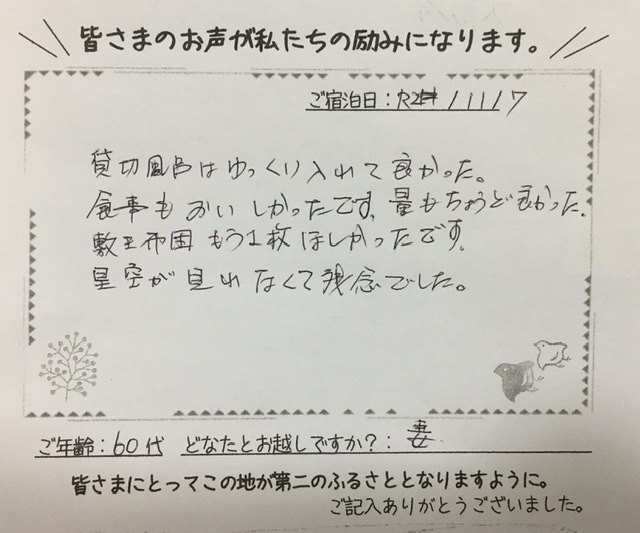 皆さまのお声が私たちの励みになります。
ご宿泊日：R2年11/17
貸切風呂はゆっくり入れて良かった。
食事もおいしかったです、量もちょうど良かった、
敷き布団もう1枚ほしかったです、
星空が見れなくて残念でした。
ご年齢：60代 どなたとお越しですか？：妻
皆さまにとってこの地が第二のふるさととなりますように。
ご記入ありがとうございました。